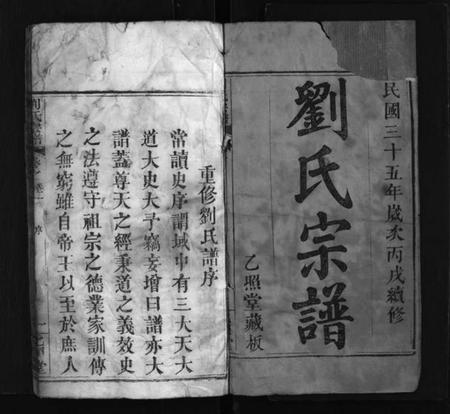 民國三十五年歲次丙戌續修
劉氏宗譜
乙照堂藏板
重修劉氏譜序
常讀史序謂域中有三大天大
道大史大予竊妄增曰譜亦大
譜蓋尊天之經秉道之義效史
之法遵守祖宗之德業家訓傳
之無窮雖自帝王以至於庶人